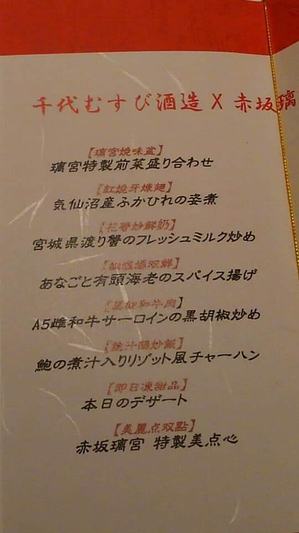 千代むすび酒造 X 赤坂璃
【璃宮焼味盆】
璃宮特製前菜盛り合わせ
気仙沼産ふかひれの姿煮
【花蟹炒鮮奶】
宮城県渡り蟹のフレッシュミルク炒め
あなごと有頭海老のスパイス揚げ
A5雌和牛サーロインの黒胡椒炒め
鮑の煮汁入りリゾット風チャーハン
【即日凍甜品】
本日のデザート
【美麗点双點】
赤坂璃宮 特製美点心